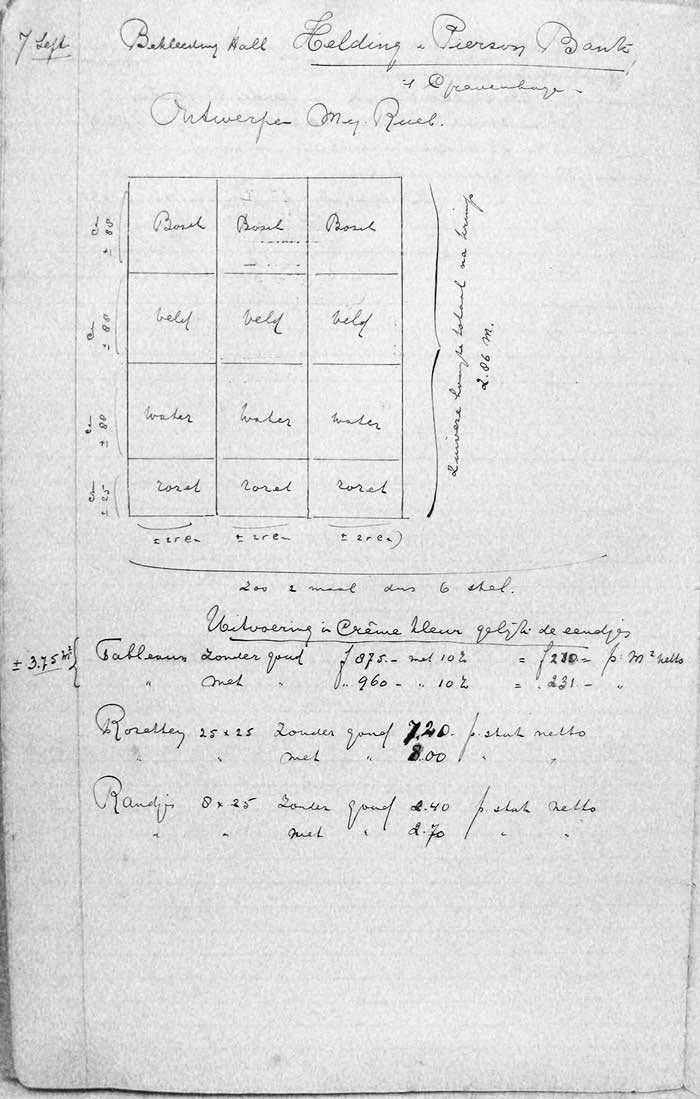 7 Sept. Bekleeding Hall Helding & Pierson Bank,
's Gravenhage.
Ontwerpen Mej. Rueb.
± 88 cm Bosch Bosch Bosch
± 80 cm veld veld veld
± 80 cm water water water
± 25 cm rozet rozet rozet
± 25 cm ± 25 cm ± 25 cm
Zuivere hoogte totaal na krimp
2.86 M.
Zoo 2 maal dus 6 stel.
Uitvoering in Crême kleur gelijk de eendjes
± 3.75 m² Tableaux Zonder goud f 875.- met 10% = f 210 = p. M² netto
" met " " 960 - " 10% = . 231 - "
Rozetten 25 x 25 Zonder goud 7.20 - p. stuk netto
" " met " 8.00 " "
Randjes 8 x 25 Zonder goud 2.40 p. stuk netto
" " met " 2.70 " "